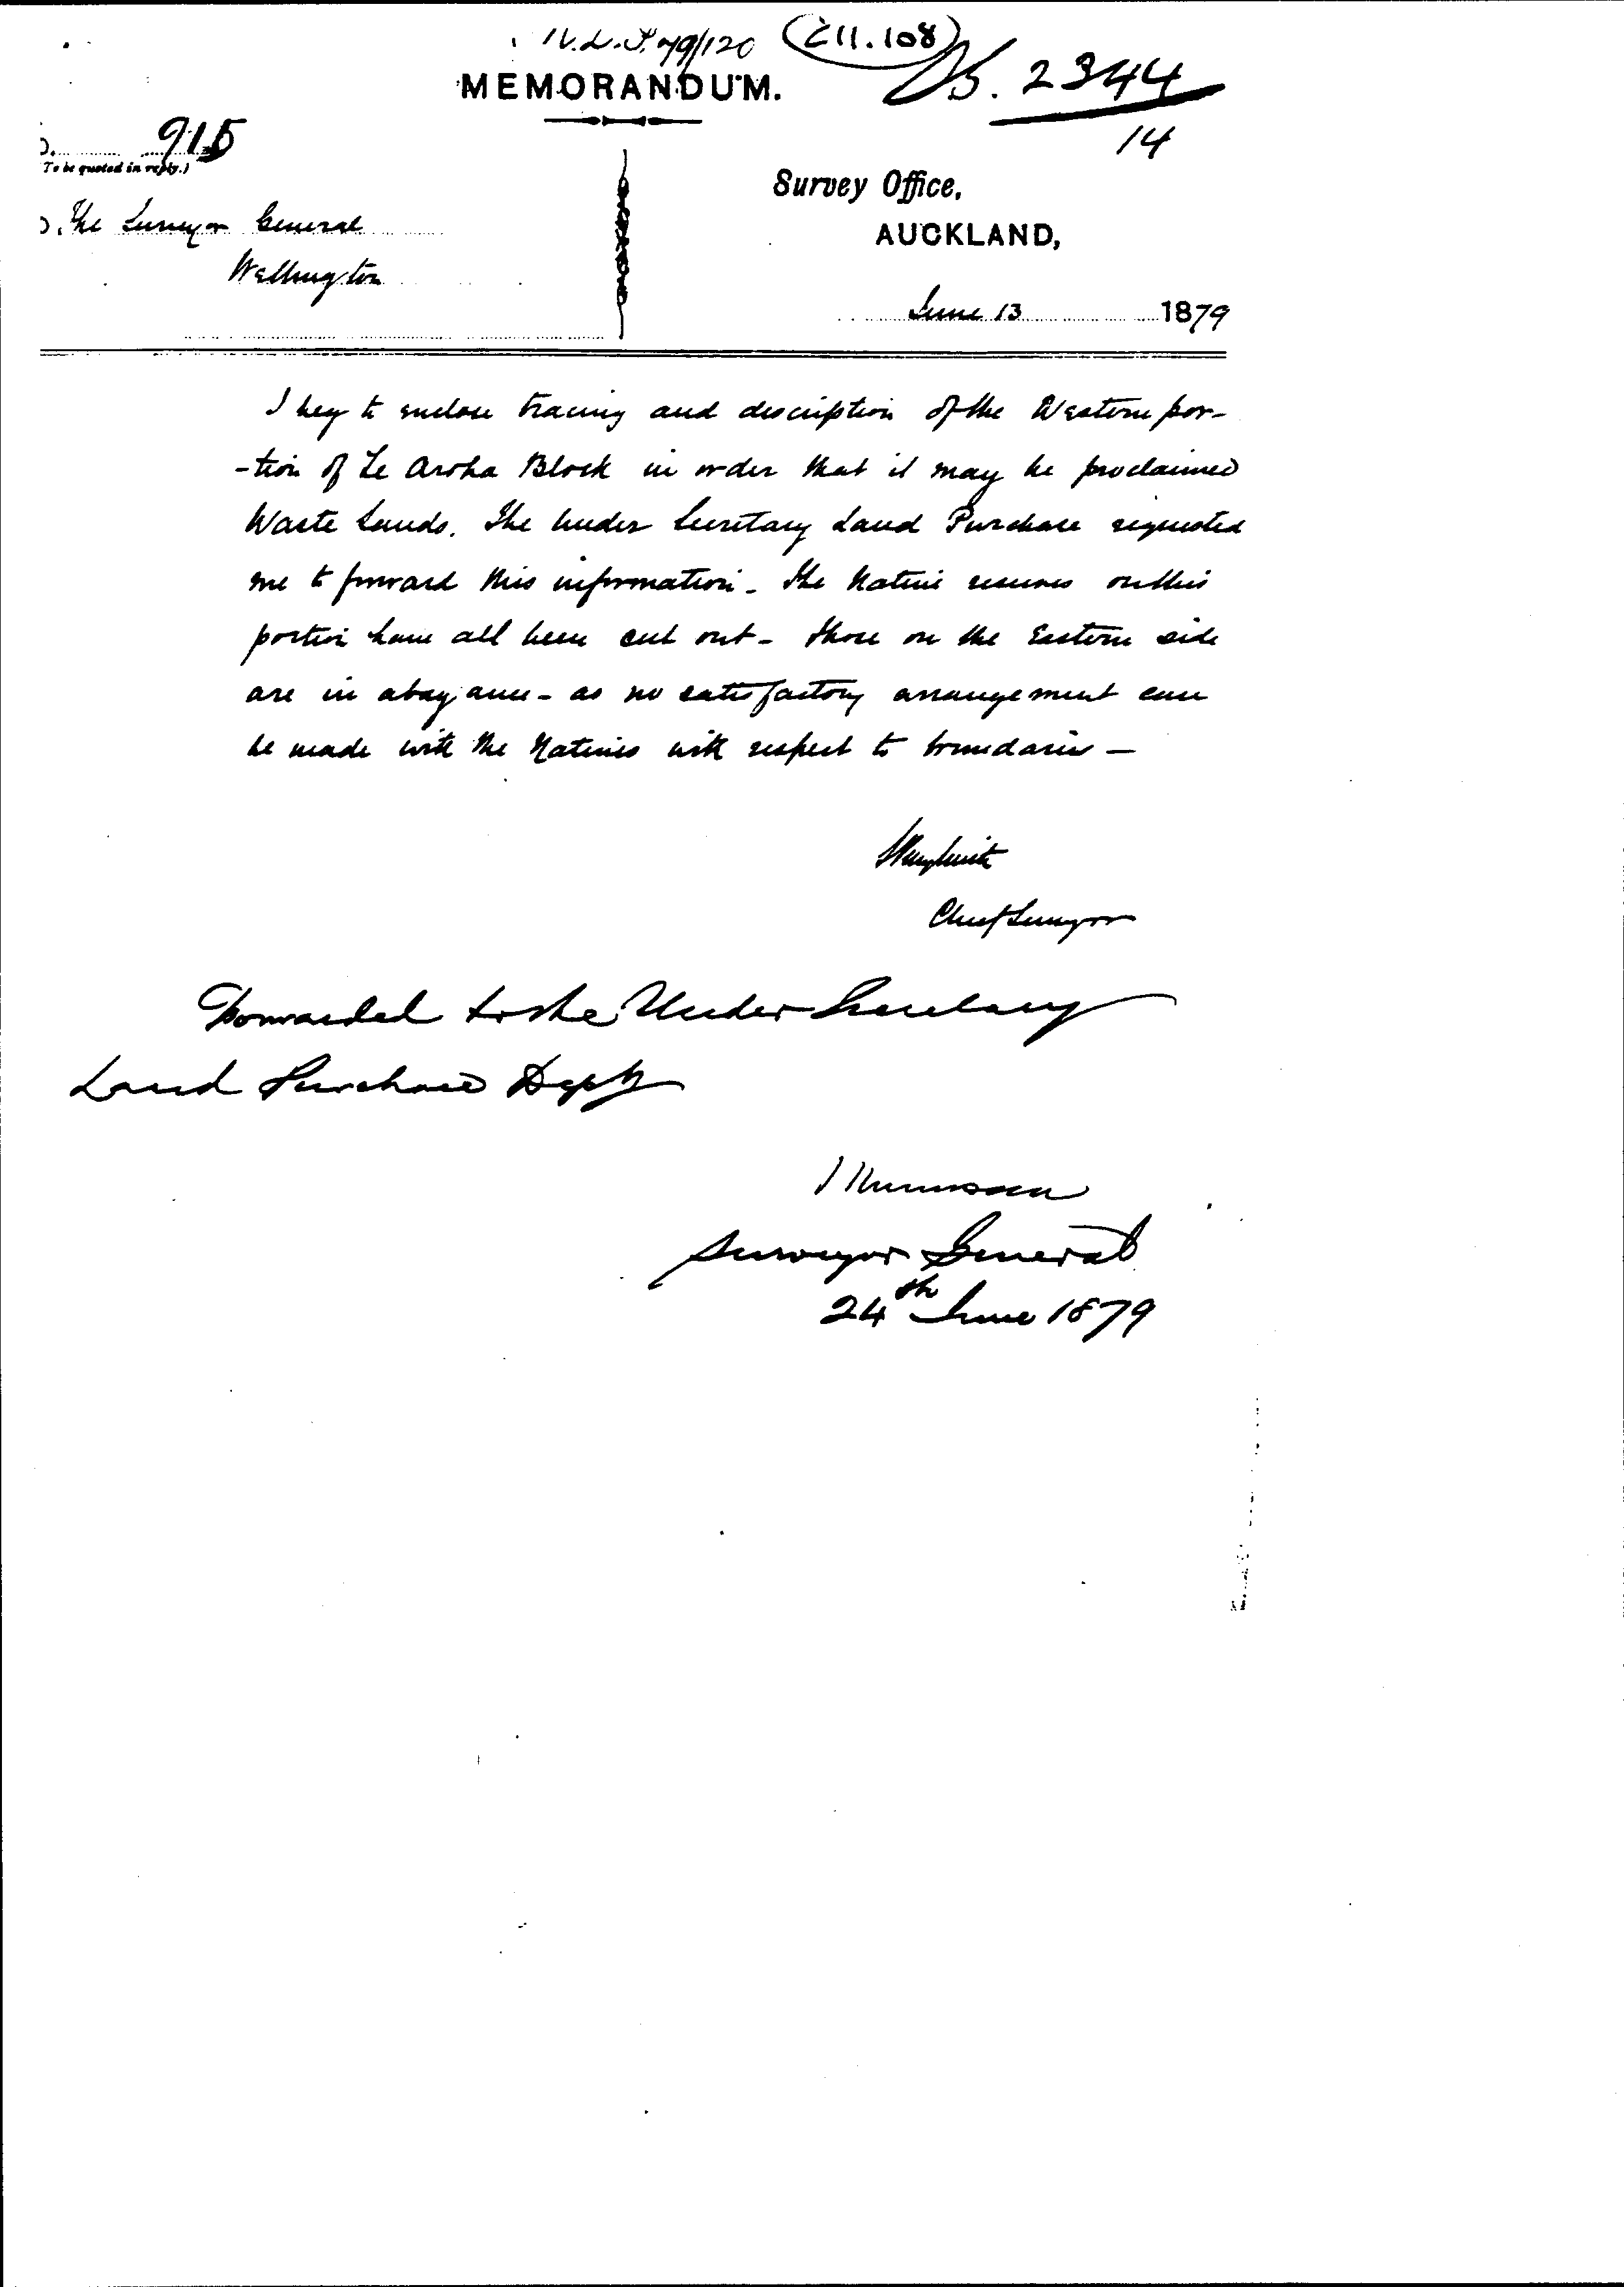 N.L.P. 79/120
C11.108
S. 2344
14
MEMORANDUM.
915
To be quoted in reply.)
Survey Office,
AUCKLAND,
June 13 1879
The Surveyor General
Wellington
I beg to enclose tracing and description of the Western por-
-tion of Te Aroha Block in order that it may be proclaimed
Waste Lands. The Under Secretary Land Purchase requested
me to forward this information - the Native reserves on this
portion have all been cut out - those on the Eastern side
are in abayance - as no satisfactory arrangement can
be made with the Natives with respect to boundaries -
Chief Surveyor
Forwarded to the Under Secretary
Land Purchase Dept
Surveyor General
24th June 1879